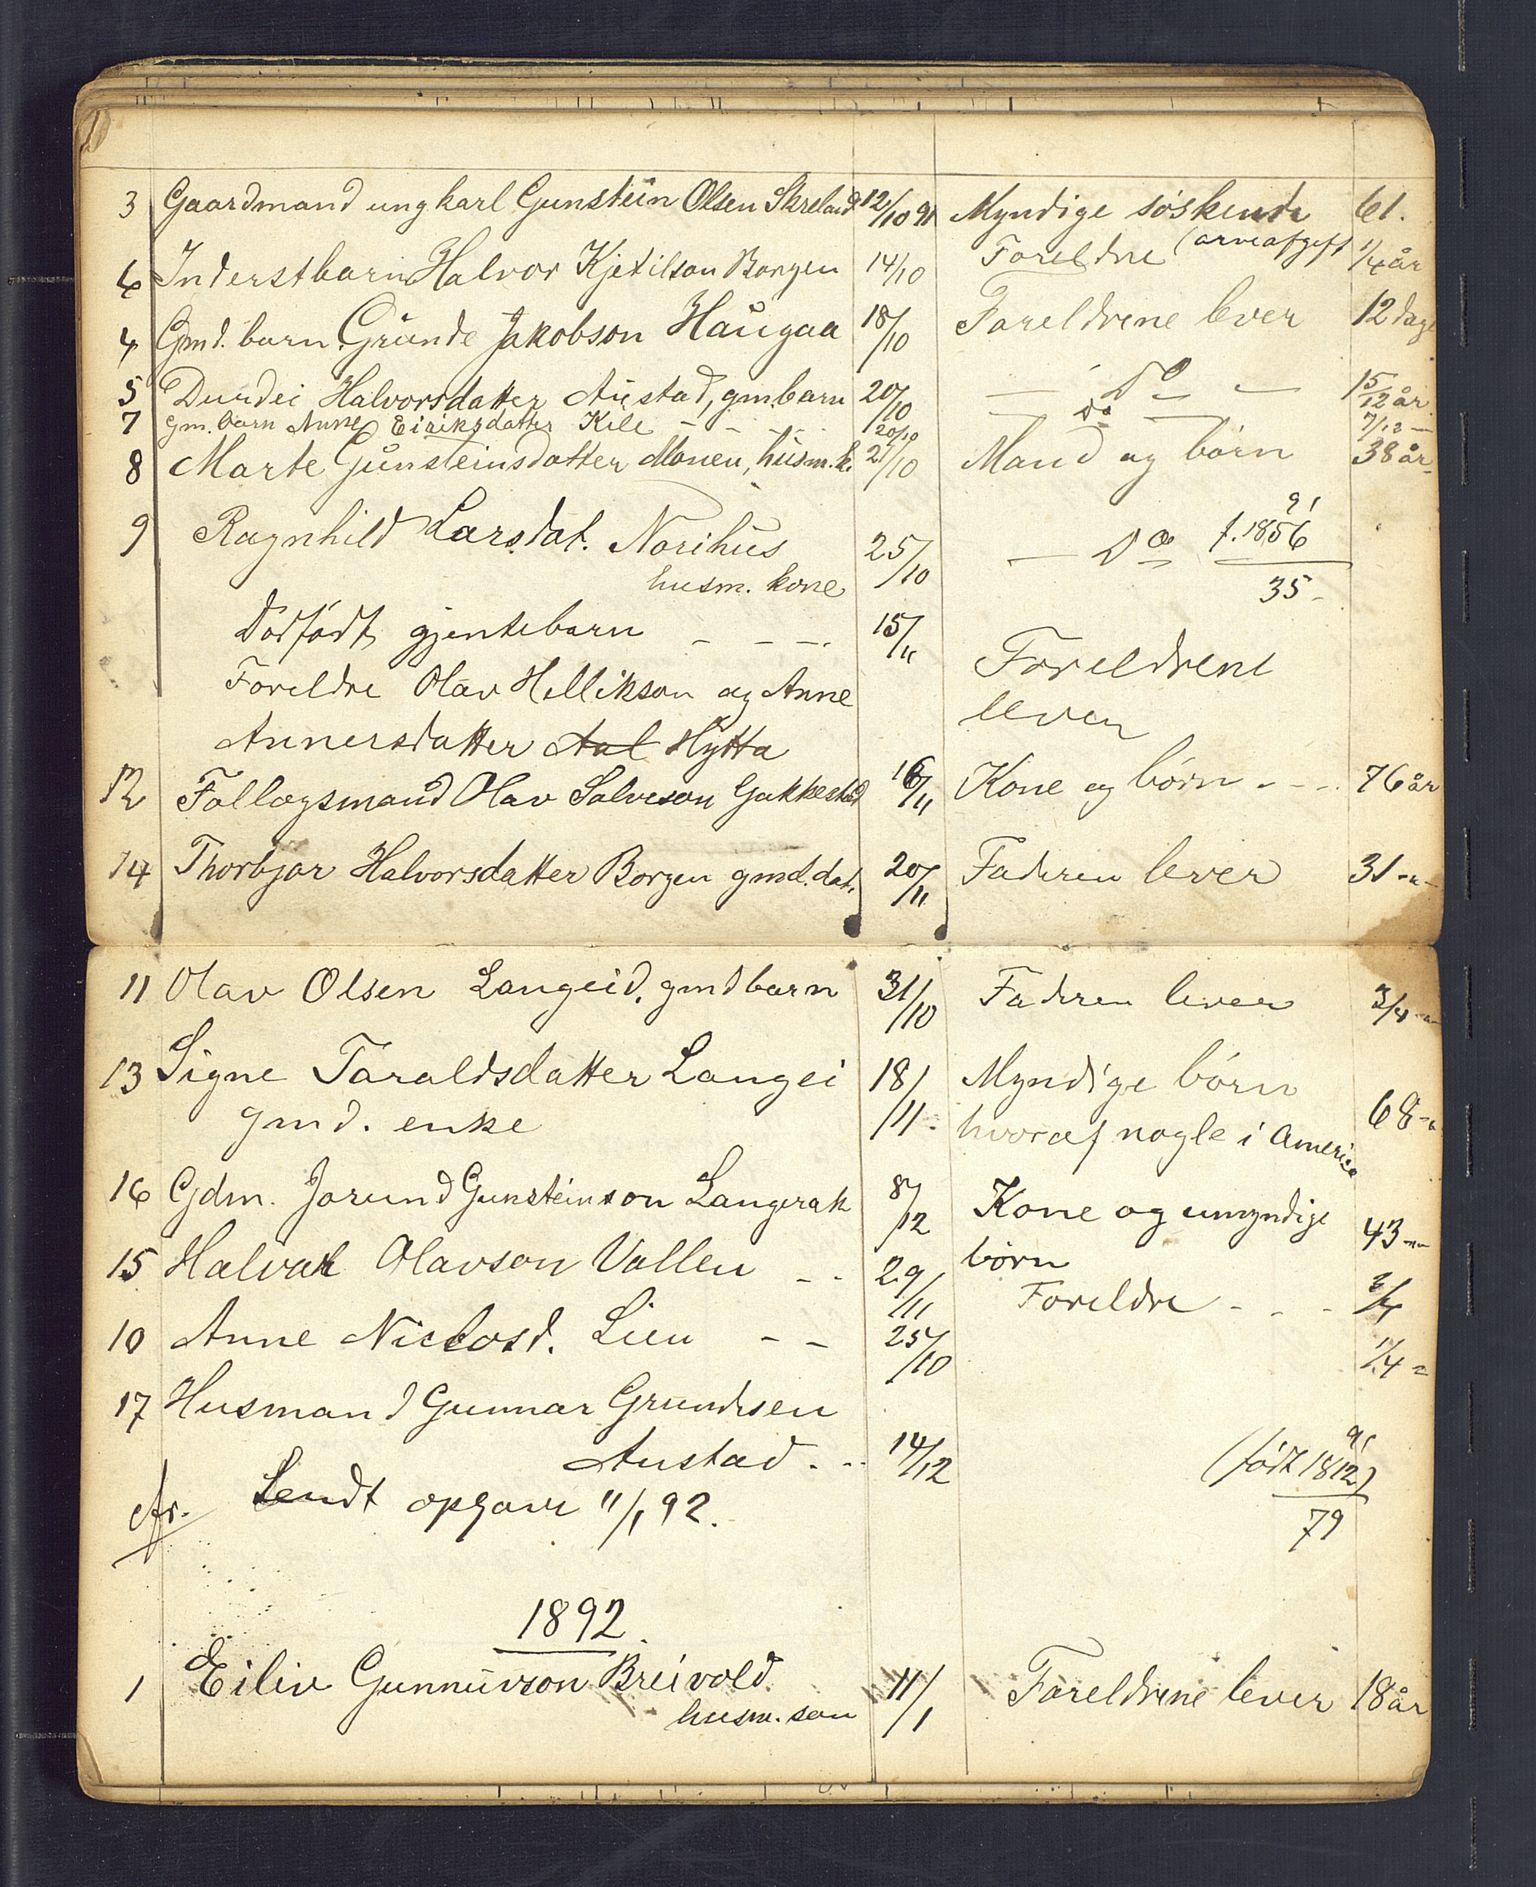 10
3 Gaardmand ungkarl Gunstein Olsen Skreland 12/10 91 Myndige søskende 61.
(arveafgift
6 Inderstbarn Halvor Kjetilson Borgen 14/10 Foreldre 1/4 år
4 Gmd. barn Gunde Jakobson Haugaa 18/10 Foreldrene lever 12 dage
5 Durdei Halvorsdatter Austad, gm.barn 20/10 — Do — 15/12 år
7 gm. barn Anne Eiriksdatter Kile - - - - 20/10 — Do — 7/12 —
8 Marte Gunsteinsdatter Monen, husm.k. 21/10 Mand og børn 38 år
91
9 Ragnhild Larsdat. Norihus 25/10 — Do f. 1856
husm. kone 35
Dødfødt gjentebarn - - - 15/11 Foreldrene
Foreldre Olav Hellikson og Anne lever
Annersdatter Aal Hytta
12 Follogsmand Olav Salveson Gakkestad 16/11 Kone og børn - - - 76 år
14 Thorbjør Halvorsdatter Borgen gmd.dat. 20/11 Faderen lever 31 -"-
11 Olav Olsen Langeid, gmdbarn 31/10 Faderen lever 3/4 -"-
13 Signe Taraldsdatter Langei 18/11 Myndige børn 68 -"-
gmd. enke hvoraf nogle i America
16 Gdm. Jorund Gunsteinson Langerak 8/12 Kone og umyndige 43 -"-
børn
15 Halvar Olavson Vallen - - 29/11 Foreldre - - - 3/4
10 Anne Niclosd. Lien - - 25/10 1/4 =
17 Husmand Gunnar Grundesen
Austad - - 14/12 (født 1812)
91
79
Sendt opgave 11/1 92.
1892
1 Eiliv Gunnuvson Breivold 11/1 Foreldrene lever 18 år
husm. søn